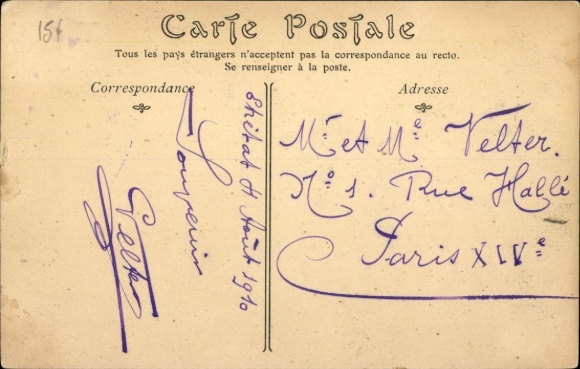 15f
Carte Postale
Tous les pays étrangers n'acceptent pas la correspondance au recto.
Se renseigner à la poste.
Correspondance
Adresse
Etrétat 4 Août 1910
Souvenir
Velter
Mr et Me Velter.
No 1. Rue Hallé
Paris XIVe